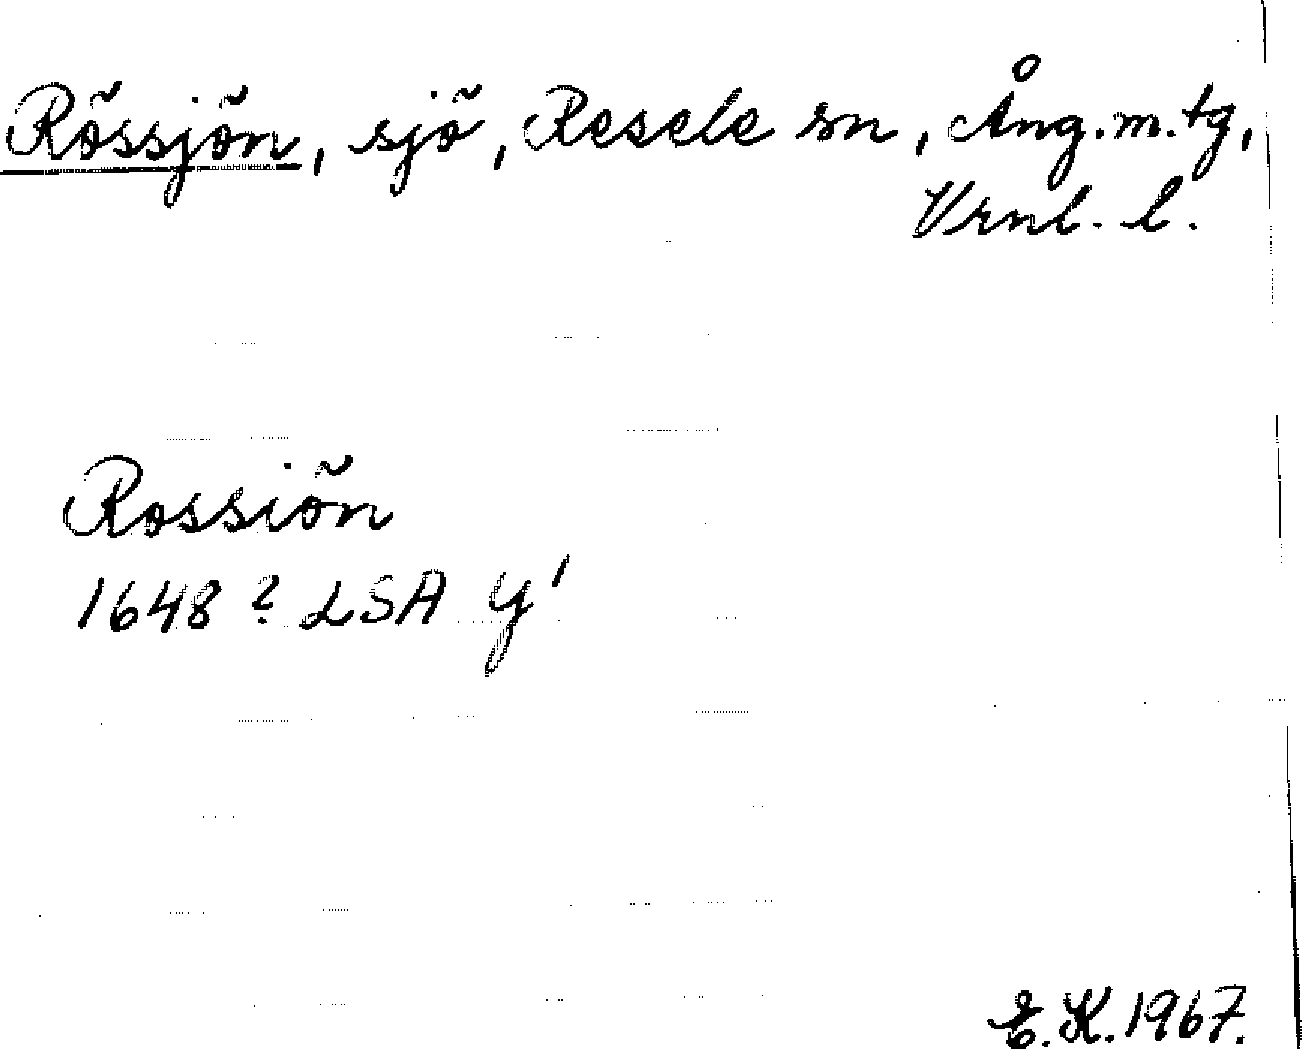 Rössjön, sjö, Resele sn, Ång.m.tg,
Vrnl. l.
Rossiön
1648? LSA Y¹
E.K. 1967.